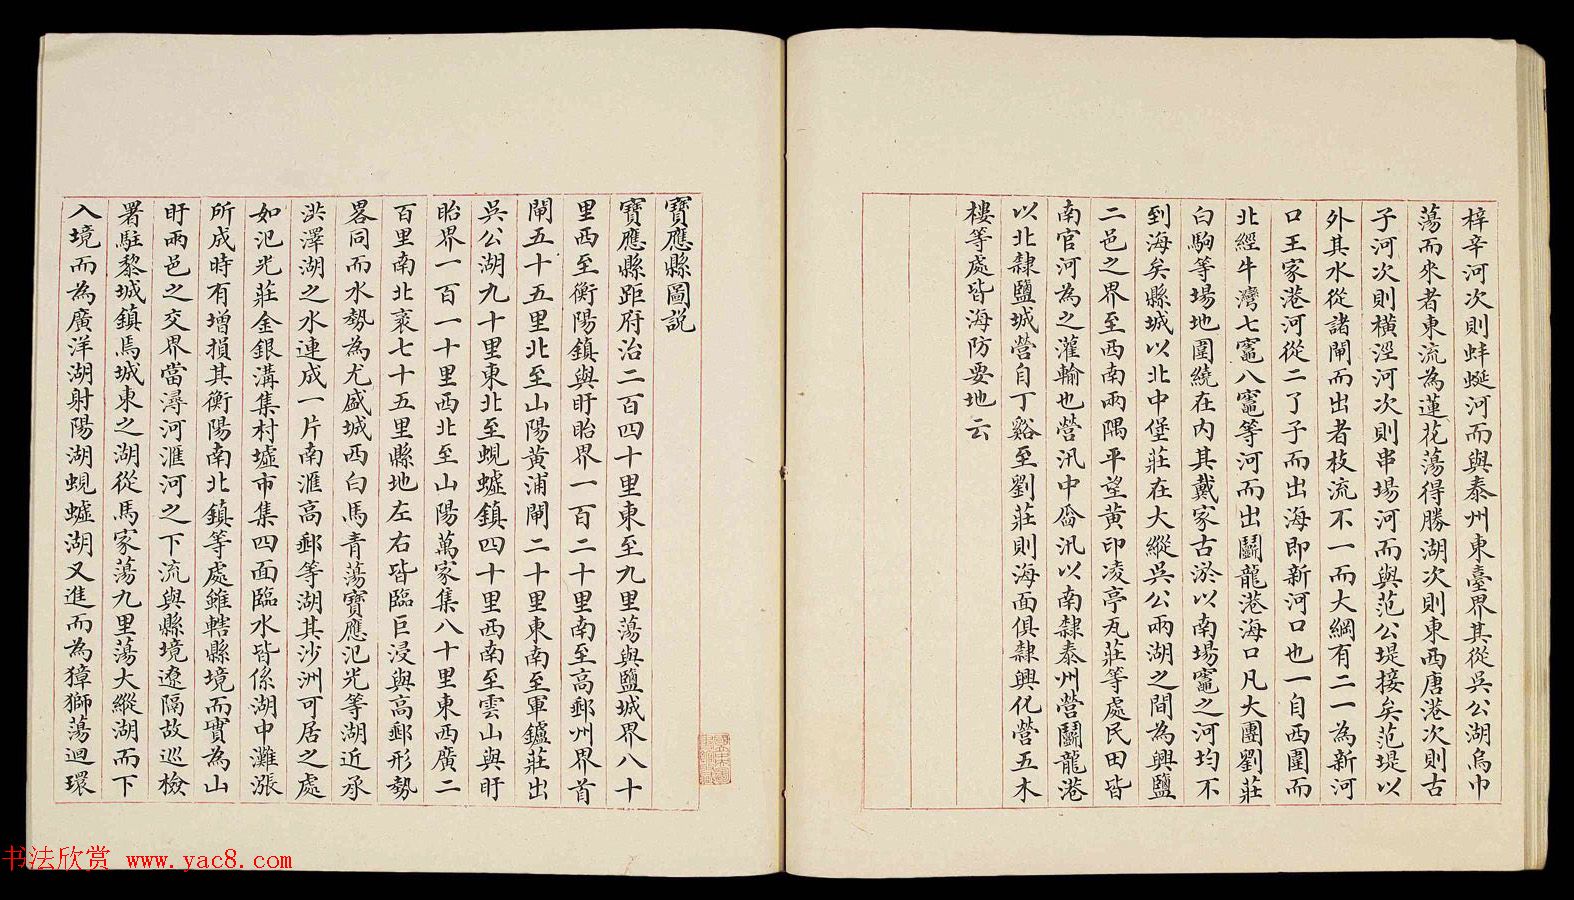 梓辛河次則蚌蜒河而與泰州東臺界其從吳公湖烏巾
蕩而來者東流為蓮花蕩得勝湖次則東西唐港次則古
子河次則橫涇河次則串場河而與范公堤接矣范堤以
外其水從諸閘而出者枝流不一而大綱有二一為新河
口王家港河從二了子而出海即新河口也一自西團而
北經牛灣七竈八竈等河而出鬬龍港海口凡大團劉莊
白駒等場地圍繞在內其戴家古淤以南場竈之河均不
到海矣縣城以北中堡莊在大縱吳公兩湖之間為興鹽
二邑之界至西南兩隅平望黃印凌亭瓦莊等處民田皆
南官河為之灌輸也營汛中畣汛以南隸泰州營鬬龍港
以北隸鹽城營自丁谿至劉莊則海面俱隸興化營五木
樓等處皆海防要地云
寶應縣圖說
寶應縣距府治二百四十里東至九里蕩與鹽城界八十
里西至衡陽鎮與盱眙界一百二十里南至高郵州界首
閘五十五里北至山陽黃浦閘二十里東南至軍鑪莊出
吳公湖九十里東北至蜆墟鎮四十里西南至雲山與盱
眙界一百一十里西北至山陽萬家集八十里東西廣二
百里南北袤七十五里縣地左右皆臨巨浸與高郵形勢
畧同而水勢為尤盛城西白馬青蕩寶應氾光等湖近承
洪澤湖之水連成一片南滙高郵等湖其沙洲可居之處
如氾光莊金銀溝集村墟市集四面臨水皆係湖中灘漲
所成時有增損其衡陽南北鎮等處雖轄縣境而實為山
盱兩邑之交界當潯河滙河之下流與縣境遼隔故巡檢
署駐黎城鎮焉城東之湖從馬家蕩九里蕩大縱湖而下
入境而為廣洋湖射陽湖蜆墟湖又進而為獐獅蕩迴環
书法欣赏 www.yac8.com